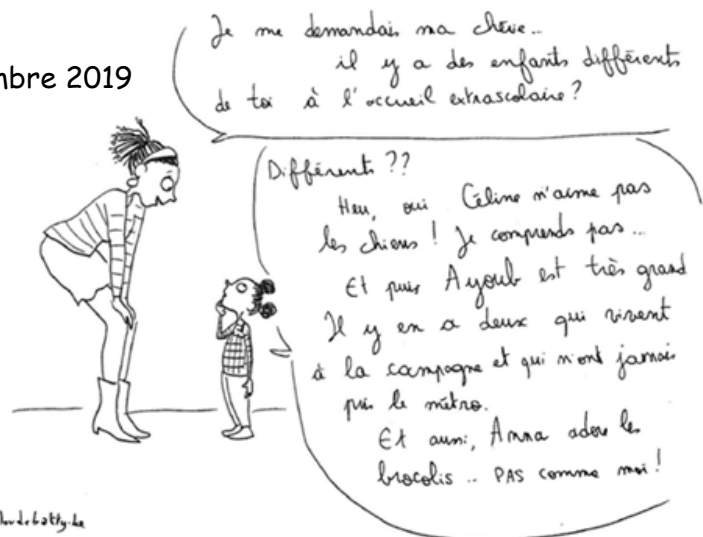 mbre 2019
Je me demandais ma chérie..
il y a des enfants différents
de toi à l'accueil extrascolaire?
Différents ??
Heu, oui Céline n'aime pas
les chiens ! Je comprends pas...
Et puis Ayoub est très grand
Il y en a deux qui vivent
à la campagne et qui n'ont jamais
pris le métro.
Et aussi, Anna adore les
brocolis .. PAS comme moi !